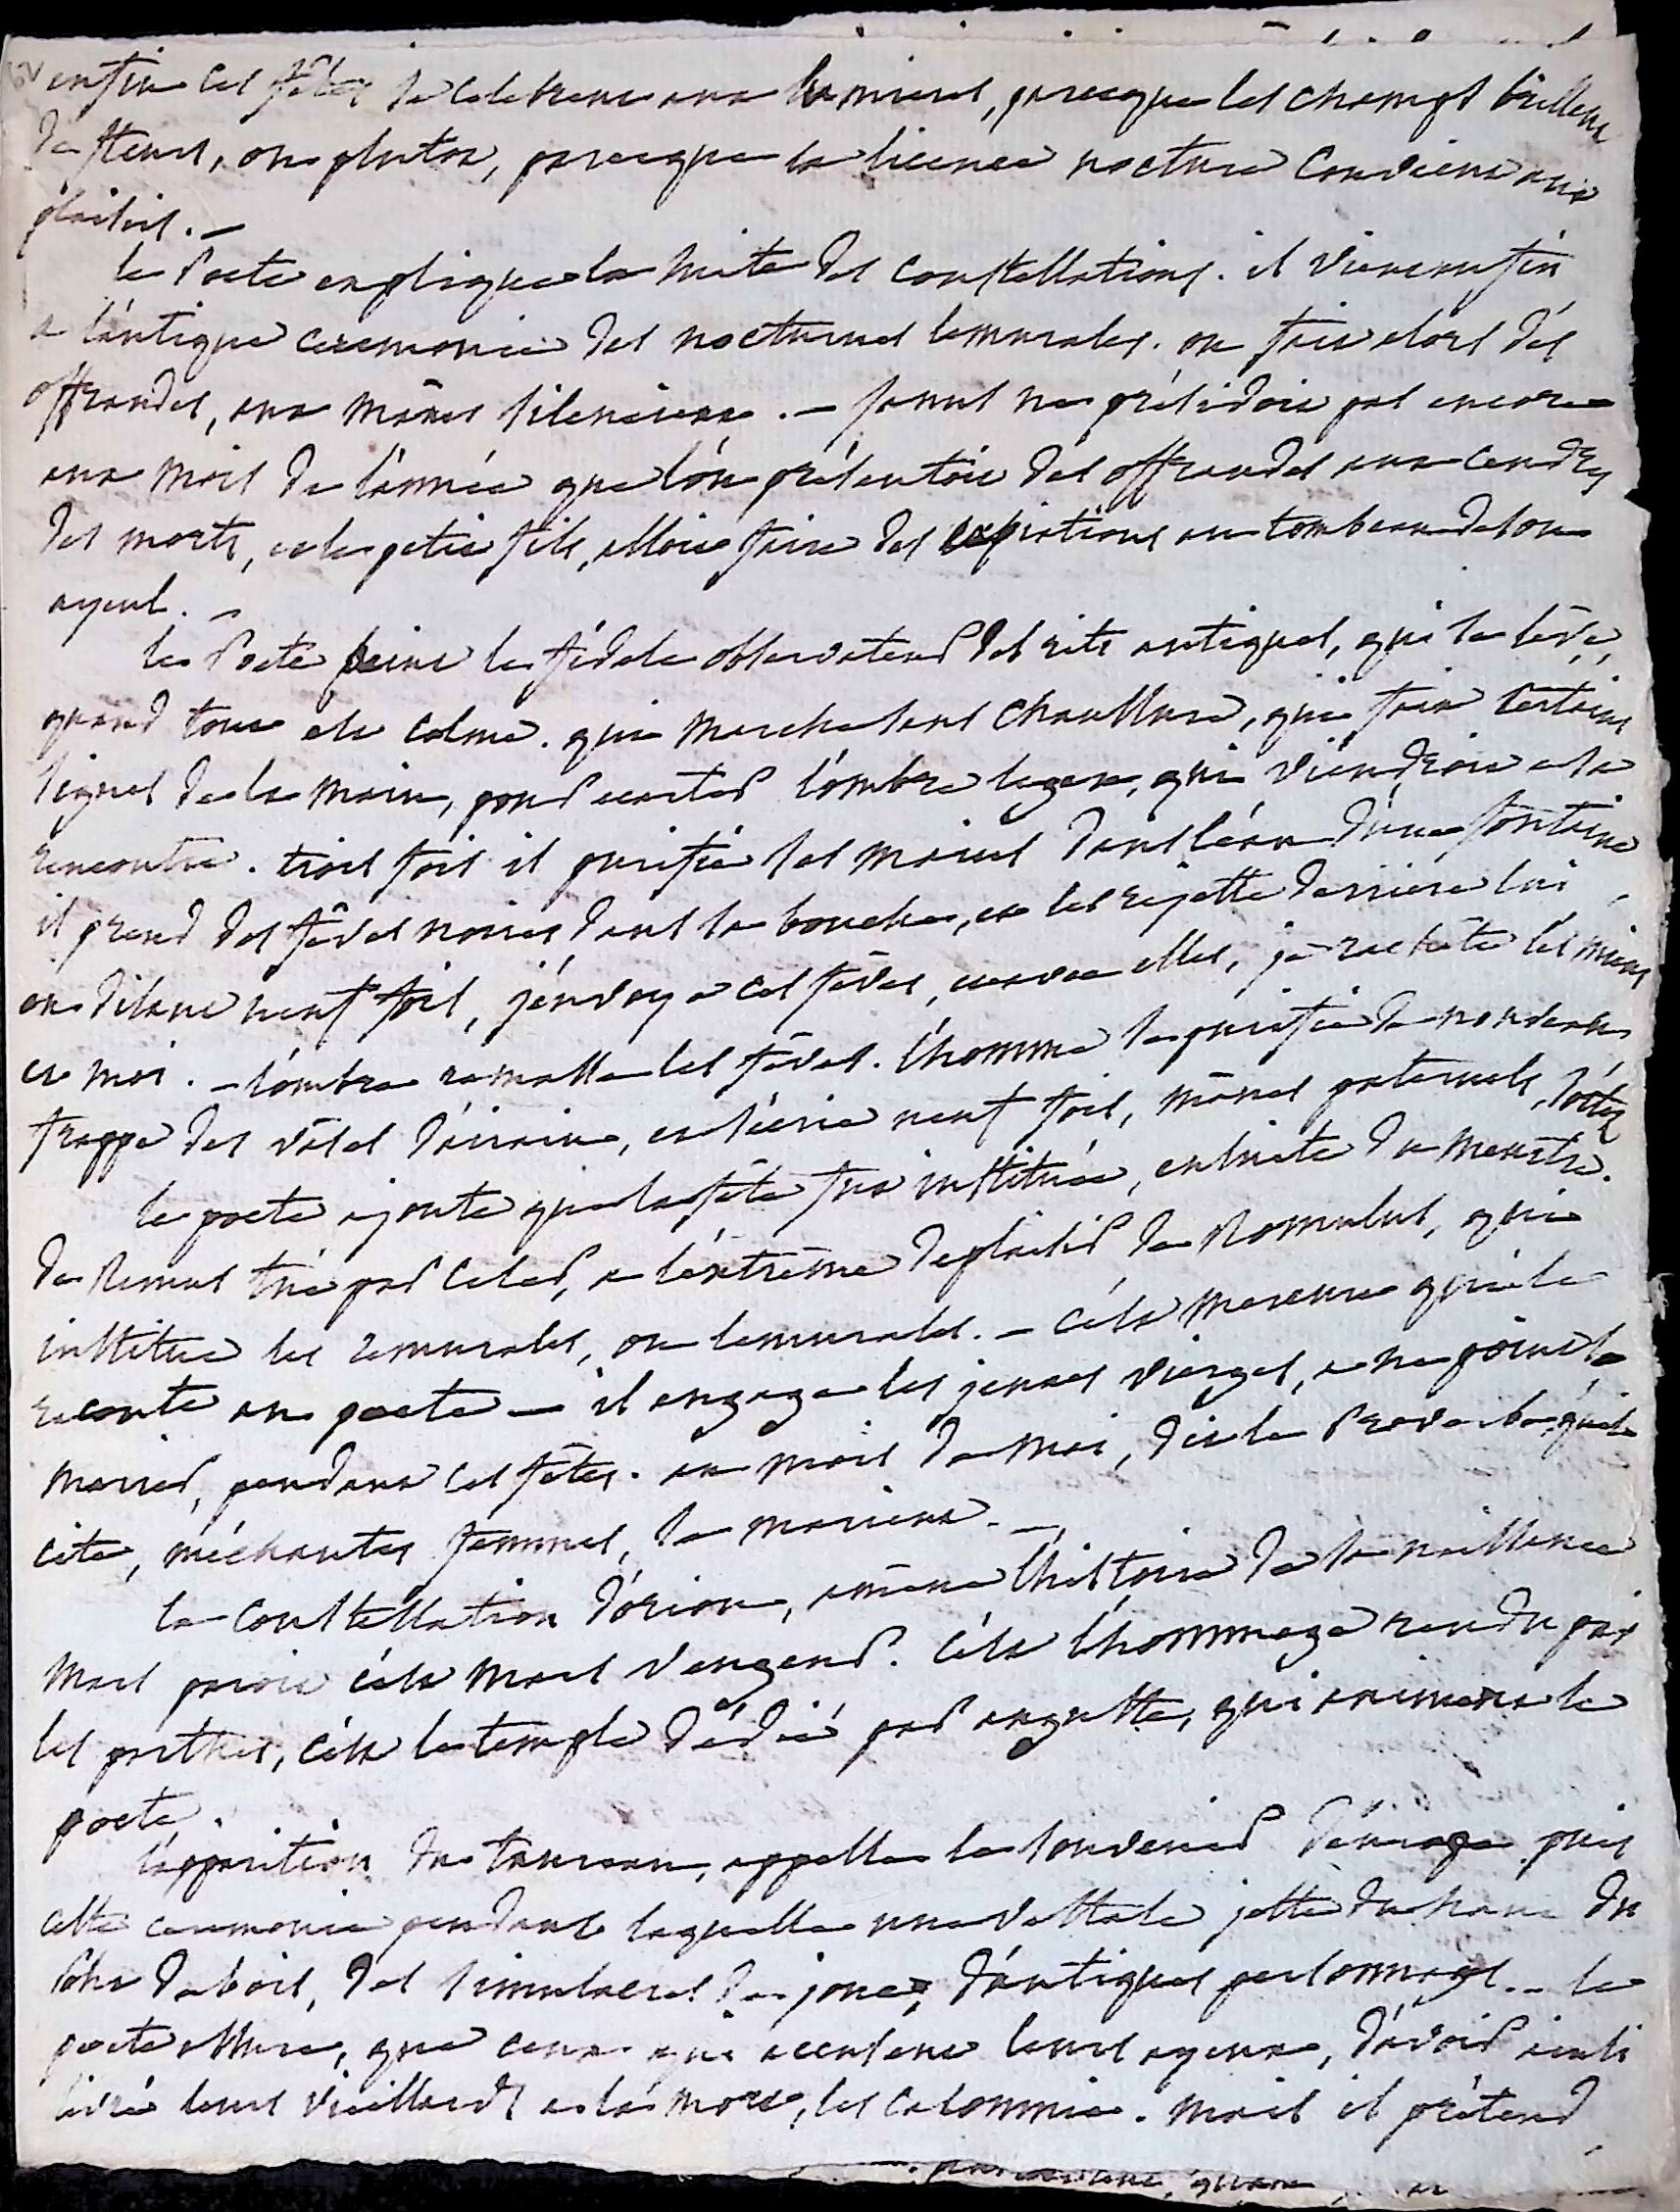 enfin ces fêtes se celebrent aux lumieres, parceque les champs brillent
de fleurs, ou plutot, parceque la licence nocturne convient aux
plaisirs. —
le Poete explique la suite des constellations. il vient enfin
a l'antique ceremonie des nocturnes lemurales. on fait alors des
offrandes, aux mânes silencieux. — Janus ne présidoit pas encore
aux mois de l'année que l'on présentoit des offrandes aux cendres
des morts, et le petit fils, alloit faire des expiations au tombeau de son
ayeul. —
le Poete peint le fidele observateur des rits antiques, qui se lève,
quand tout est calme. qui marche sans chaussure, qui fait certains
signes de la main, pour écarter l'ombre legere, qui viendroit a sa
rencontre. trois fois il purifie ses mains dans l'eau d'une fontaine
il prend des fèves noires dans sa bouche, et les rejette derriere lui
en disant neuf fois, j'envoye ces fèves, et avec elles, je rachete les miens
et moi. — l'ombre ramasse les fèves. l'homme se purifie de nouveau
frappe des vases d'airain, et s'écrie neuf fois, mânes paternels, sortez
le poete ajoute que la fête fut instituée, ensuite du meurtre
de Remus tué par Celer, a l'extrême deplaisir de Romulus, qui
institua les remurales, ou lemurales. — c'est mercure qui le
raconte au poete — il engage les jeunes vierges, a ne point se
marier, pendant ces fêtes. au mois de mai, dit le Proverbe qu'il
cite, méchantes femmes, se marient. —
la constellation d'orion, amène l'histoire de sa naissance
Mars paroit c'est mars vengeur. c'est l'hommage rendu par
les parthes, c'est le temple dédié par auguste, qui animent le
poete.
l'apparition du taureau, appelle le souvenir d'europe puis
cette ceremonie pendant laquelle une vestale jette du haut du
pont de bois, des simulacres de jonc, d'antiques personnages. — le
poete assure, que ceux qui accusent leurs ayeux, d'avoir ainsi
livré leurs vieillards a la mort, les calomnie. mais il prétend